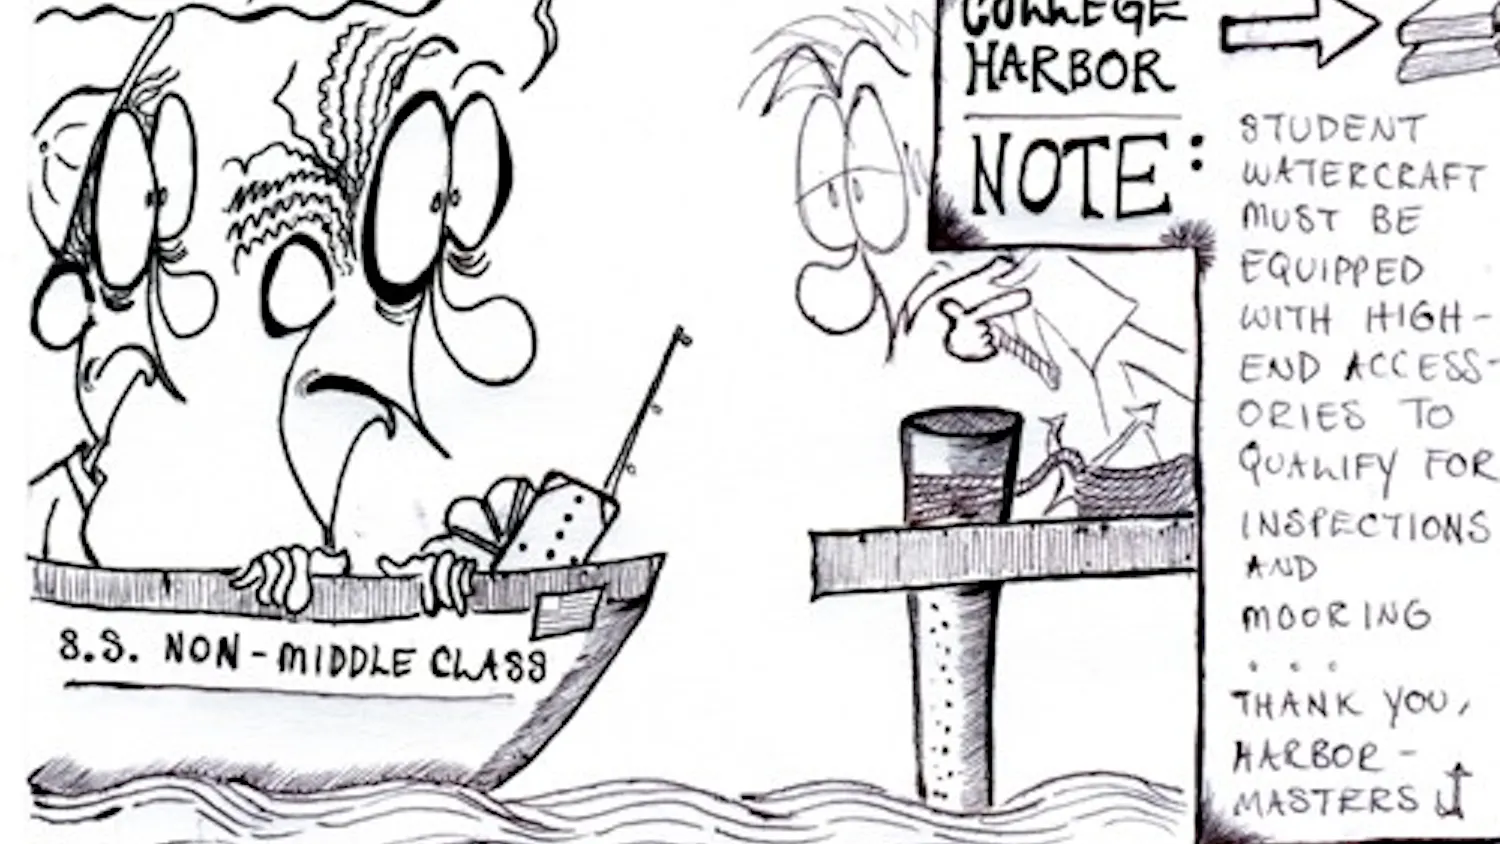 COLLEGE
HARBOR
NOTE:
STUDENT
WATERCRAFT
MUST BE
EQUIPPED
WITH HIGH-
END ACCESS-
ORIES TO
QUALIFY FOR
INSPECTIONS
AND
MOORING
...
THANK YOU,
HARBOR-
MASTERS
S.S. NON-MIDDLE CLASS